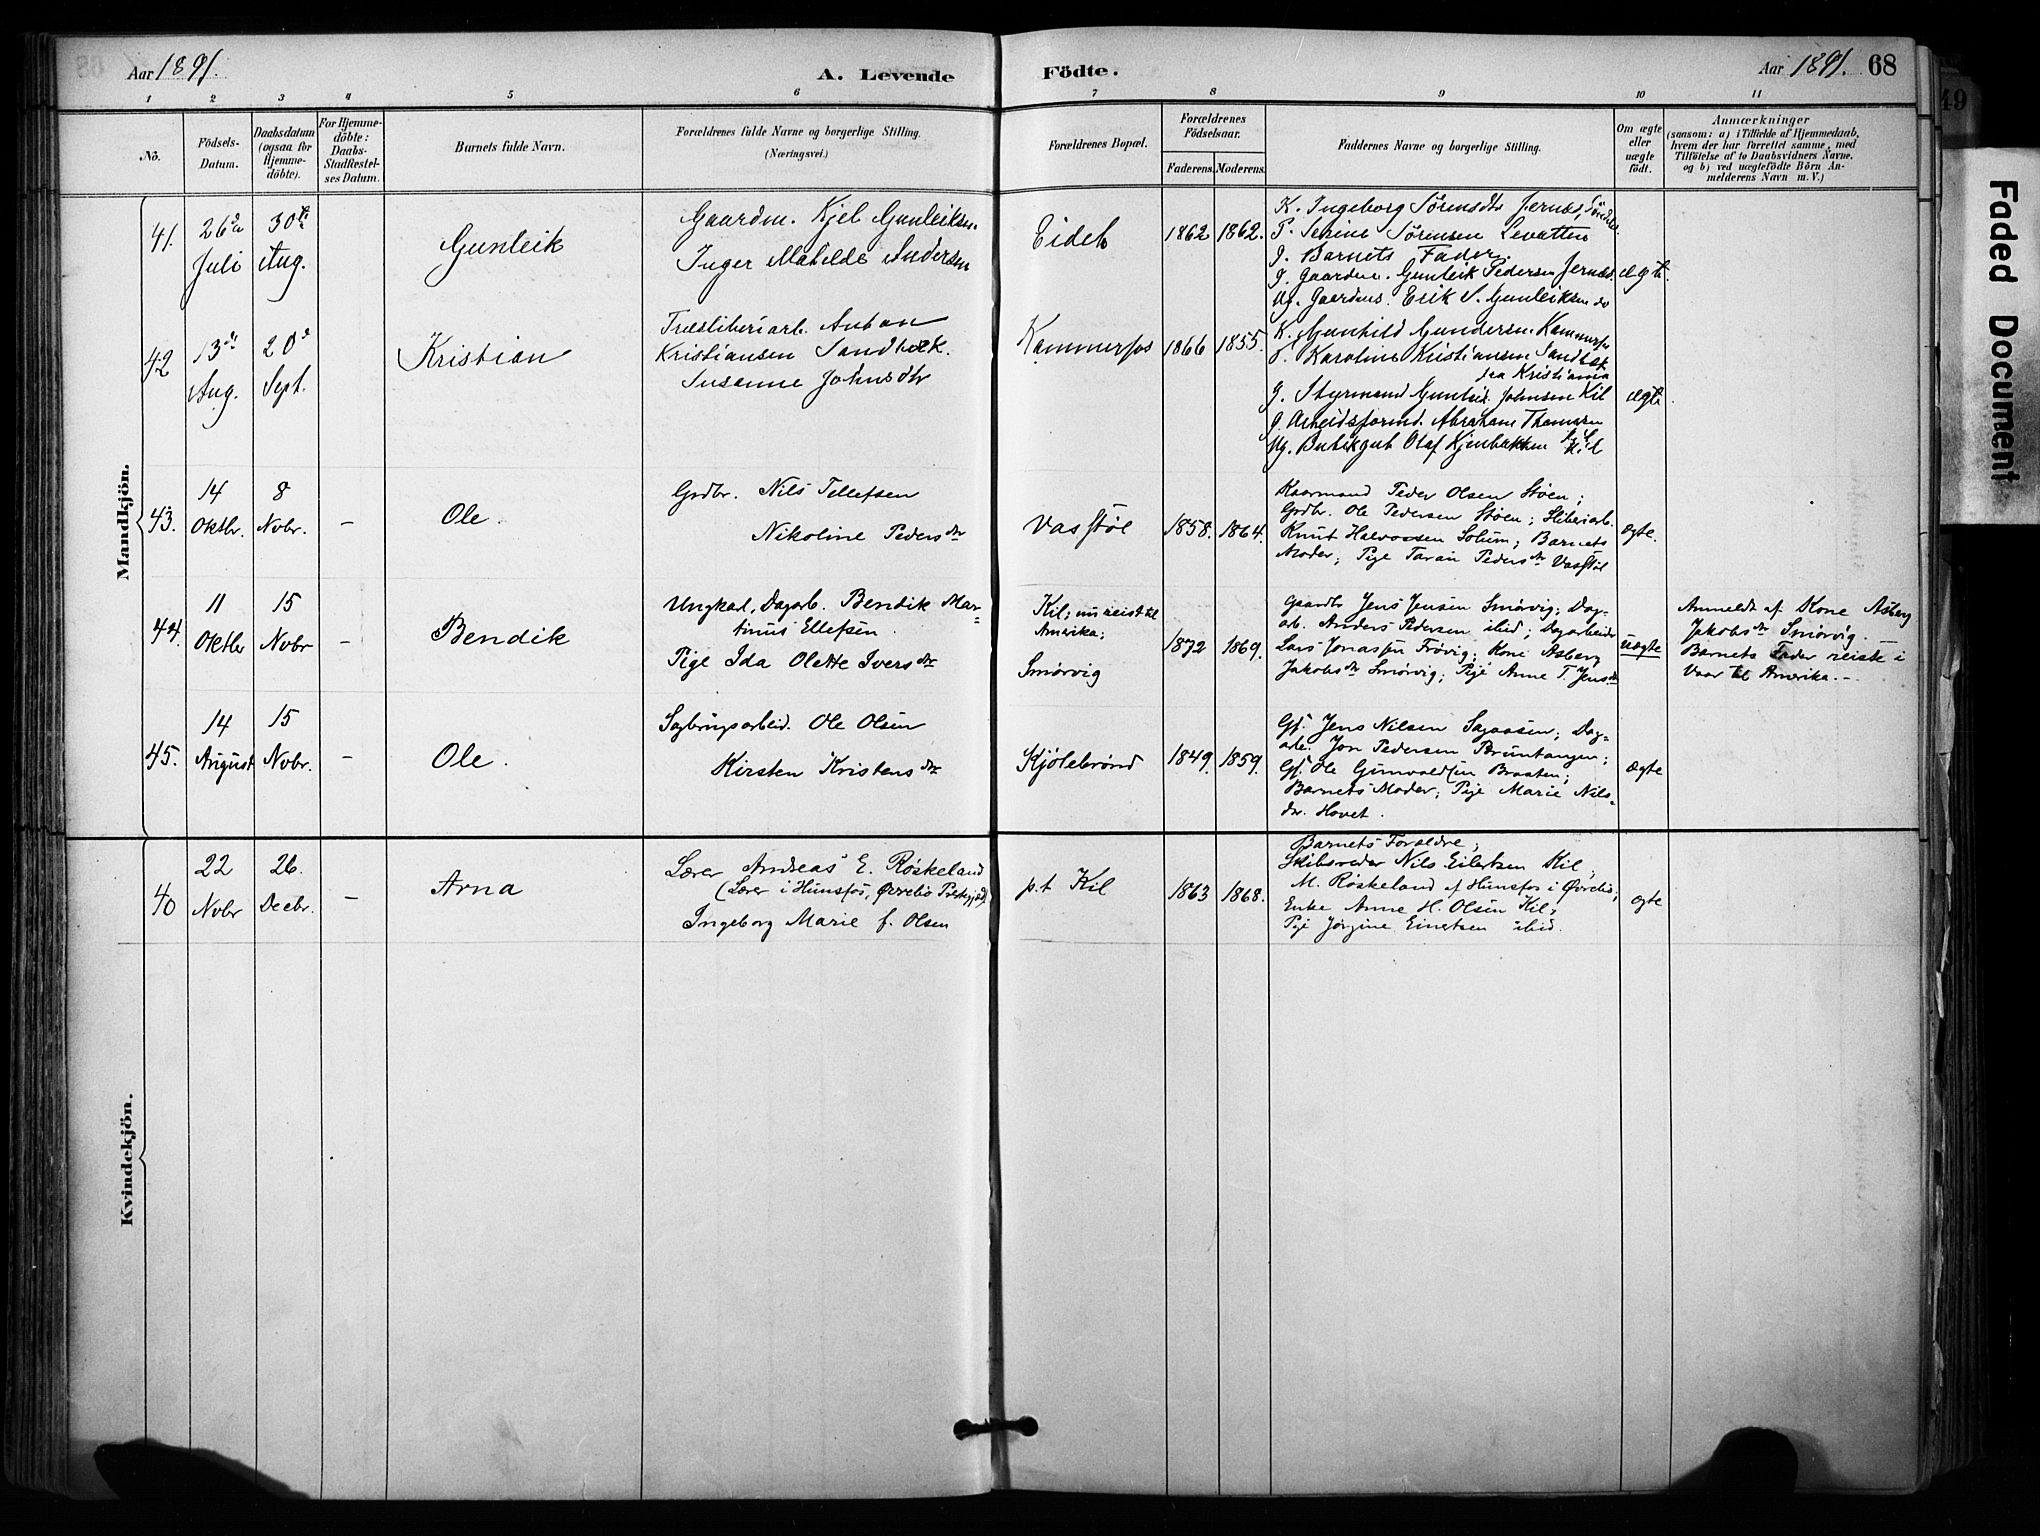 Aar 1891.
A. Levende Födte.
Aar 1891. 68
49
1 2 3 4 5 6 7 8 9 10 11
No.
Födsels-Datum.
Daabsdatum (ogsaa for Hjemme-döbte).
For Hjemme-döbte: Daabs-Stadfæstel-ses Datum.
Barnets fulde Navn.
Forældrenes fulde Navne og borgerlige Stilling.
(Næringsvei.)
Forældrenes Bopæl.
Forældrenes Födselsaar.
Faderens. Moderens.
Faddernes Navne og borgerlige Stilling.
Om ægte eller uægte født.
Anmærkninger
(saasom: a) i Tilfælde af Hjemmedaab, hvem der har forrettet samme, med Tilföielse af to Daabsvidners Navne, og b) ved uægtefödte Börn An-melderens Navn m. V.)
Mandkjön.
41.
26de Juli
30te Aug.
Gunleik
Gaardm. Kjel Gunleiksen.
Inger Mathilde Andersen
Eidet
1862 1862.
K. Ingeborg Sørensdtr Jernes,
P. Serine Sørensen Levatten
J. Barnets Fader.
G. Gaardm. Gunleik Pedersen Jernes.
Ug. Gaardms. Erik S. Gunleiksen do
ægte.
42
13de Aug.
20de Sept.
Kristian
Træsliberiarb. Anton
Kristiansen Sandbæk.
Susanne Johnsdtr
Kammerfos
1866 1855.
K. Gunhild Gundersen Kammerfos
P. Karoline Kristiansen Sandbæk
fra Kristiania
G. Styrmand Gunleik Johnsen Kil
G. Arbeidsformd. Abraham Thomesen
Ug. Butikgut Olaf Kjenbakken Kil
ægte
43.
14 Oktbr.
8 Nobr.
-
Ole.
Grdbr. Nils Tellefsen
Nikoline Pedersdtr
Vasstøl
1858. 1864.
Kaarmand Peder Olsen Støen;
Grdbr. Ole Pedersen Støen; Sliberiarb.
Knut Halvorsen Solum; Barnets
Moder; Pige Taran Pedersdtr Vasstøl
ægte.
44.
11 Oktbr
15 Nobr
-
Bendik
Ungkarl, Dagarb. Bendik Mar-
tinus Ellefsen.
Pige Ida Olette Iversdtr
Kil; nu reist til
Amerika;
Smørvig
1872 1869.
Gaardbr Jens Jensen Smørvig; Dag-
arb. Anders Pedersen ibid; Dagarbeider
Lars Jonassen Frøvig; Kone Asberg
Jakobsdtr Smørvig; Pige Anne T. Jensdtr
uægte
Anmeldt af Kone Asberg
Jakobsdtr Smørvig. -
Barnets Fader reiste i
Vaar til Amerika. -
45.
14 August
15 Nobr.
-
Ole.
Sagbrugsarbeid. Ole Olsen
Kirsten Kristensdtr
Kjølebrønd
1849. 1859.
Gf. Jens Nilsen Sagaasen; Dag-
arb. Jon Pedersen Bruntangen;
Gf. Ole Gunvaldsen Braaten;
Barnets Moder; Pige Marie Nils-
dtr. Hovet.
ægte
Kvindekjön.
40
22 Nobr
26. Decbr.
-
Arna
Lærer Andreas E. Røskeland
(Lærer i Hunsfos, Øvrebø Præstegjæld)
Ingeborg Marie f. Olsen
p.t Kil
1863 1868.
Barnets Forældre;
Skibsreder Nils Eilertsen Kil,
M. Røskeland af Hunsfos i Øvrebø;
Enke Anne H. Olsen Kil;
Pige Jørgine Einertsen ibid.
ægte
Faded Document